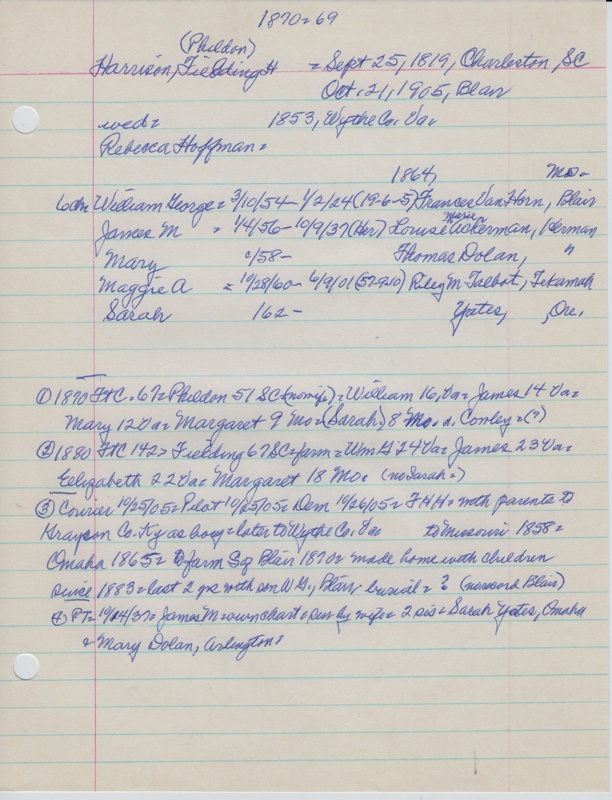 1870=69
(Phildon)
Harrison, Fielding H = Sept 25, 1819, Charleston, SC
Oct. 21, 1905, Blair
wed= 1853, Wythe Co. Va.
Rebecca Hoffman=
1864, Mo-
6 ch William George = 3/10/54- 1/2/24 (19-6-5) Frances Van Horn, Blair
James M = 1/4/56- 10/9/37 (Her) Louise Marie Ackerman, Herman
Mary c/58- Thomas Dolan, "
Maggie A = 10/28/60- 6/9/01 (57920) Riley M Talbot, Tekamah
Sarah 162- Yates, , Ore.
① 1870 FtC. 67= Phildon 51 SC (no wife) = William 16, Va= James 14 Va=
Mary 12 Va= Margaret 9 Mo= (Sarah) 8 Mo. n. Conley = (?)
② 1880 FtC 142> Fielding 67 SC= farm= Wm G 24 Va= James 23 Va=
Elizabeth 22 Va= Margaret 18 Mo= (no Sarah=)
③ Courier 10/25/05= Pilot 10/25/05= Dem 10/26/05= F H H= with parents to
Grayson Co. Ky as boy= later to Wythe Co. Va to Missouri 1858=
Omaha 1865= to farm Blair 1870= made home with children
since 1883= last 2 yrs with son W G., Blair, burial = ? (no record Blair)
④ PT= 10/14/37= James M= own chart= sur by wife= 2 sis= Sarah Yates, Omaha
+ Mary Dolan, Arlington=